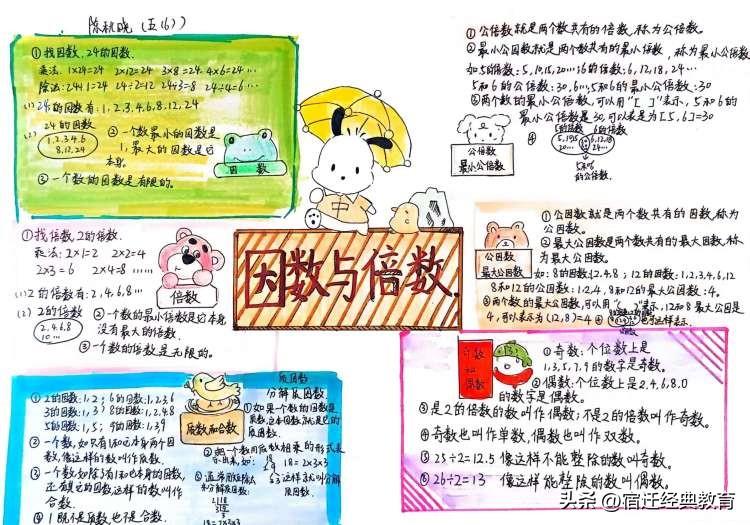 陈秋晓（五16）
①找因数，24的因数．
乘法：1×24=24 2×12=24 3×8=24．4×6=24…
除法：24÷1=24 24÷2=12 24÷3=8 24÷4=6…
(1)24的因数有：1，2，3，4，6，8，12，24
(2) 24的因数
1,2,3,4,6
8,12,24
②一个数最小的因数是
1，最大的因数是它
本身．
③一个数的因数是有限的．
因数
①找倍数，2的倍数．
乘法：2×1=2 2×2=4
2×3=6 2×4=8……
(1)2的倍数有：2，4，6，8…
(2) 2的倍数
2,4,6,8
10…
②一个数的最小倍数是它本身
没有最大的倍数．
③一个数的倍数是无限的．
倍数
①2的因数：1，2；6的因数：1,2,3,6
3的因数：1,3；8的因数：1,2,4,8
5的因数：1,5；9的因数：1,3,9
②一个数，如只有1和它本身两个因
数，像这样的数叫作质数．
③一个数，如除了1和它本身的因数，
还有其它的因数这样的数叫作
合数．
④1既不是质数，也不是合数．
质数和合数
质因数
分解质因数
①如果一个数的因数是
质数，这个因数就是它的
质因数．
②把一个数用质数相乘的形式表
示出来，如： 18=2×3×3
这样就叫分解
质因数．
18=2×3×3
因数与倍数．
①公倍数就是两个数共有的倍数，称为公倍数．
②最小公因数就是两个数共有的最小倍数，称为最小公倍数．
如5的倍数：5，10，15，20…；6的倍数：6，12，18，24…
5和6的公倍数：30，6…；5和6的最小公倍数：30
③两个数的最小公倍数，可以用“[ ]”表示，5和6的
最小公倍数是30，可以表为[5，6]=30
④
5的倍数 6的倍数
5和6
的公倍数．
公倍数
最小公倍数
①公因数就是两个数共有的因数，称为
公因数．
②最大公因数是两个数共有的最大因数，称
为最大公因数．
如：8的因数：1，2，4，8；12的因数：1，2，3，4，6，12
8和12的公因数：1，2，4，8和12的最大公因数：4．
③两个数的最大公因数，可以用“( )”表示，12和8最大公因是
4，可以表示为(12，8)=4 ④ 也可这样表示．
公因数
最大公因数
奇数
和
偶数
①奇数：个位数上是
1，3，5，7，9的数字是奇数．
②偶数：个位数上是2，4，6，8，0
的数字是偶数．
③是2的倍数的数叫作偶数；不是2的倍数叫作奇数．
④奇数也叫作单数，偶数也叫作双数．
⑤25÷2=12.5 像这样不能整除的数叫奇数．
⑥26÷2=13 像这样能整除的数叫偶数．
头条 @宿迁经典教育